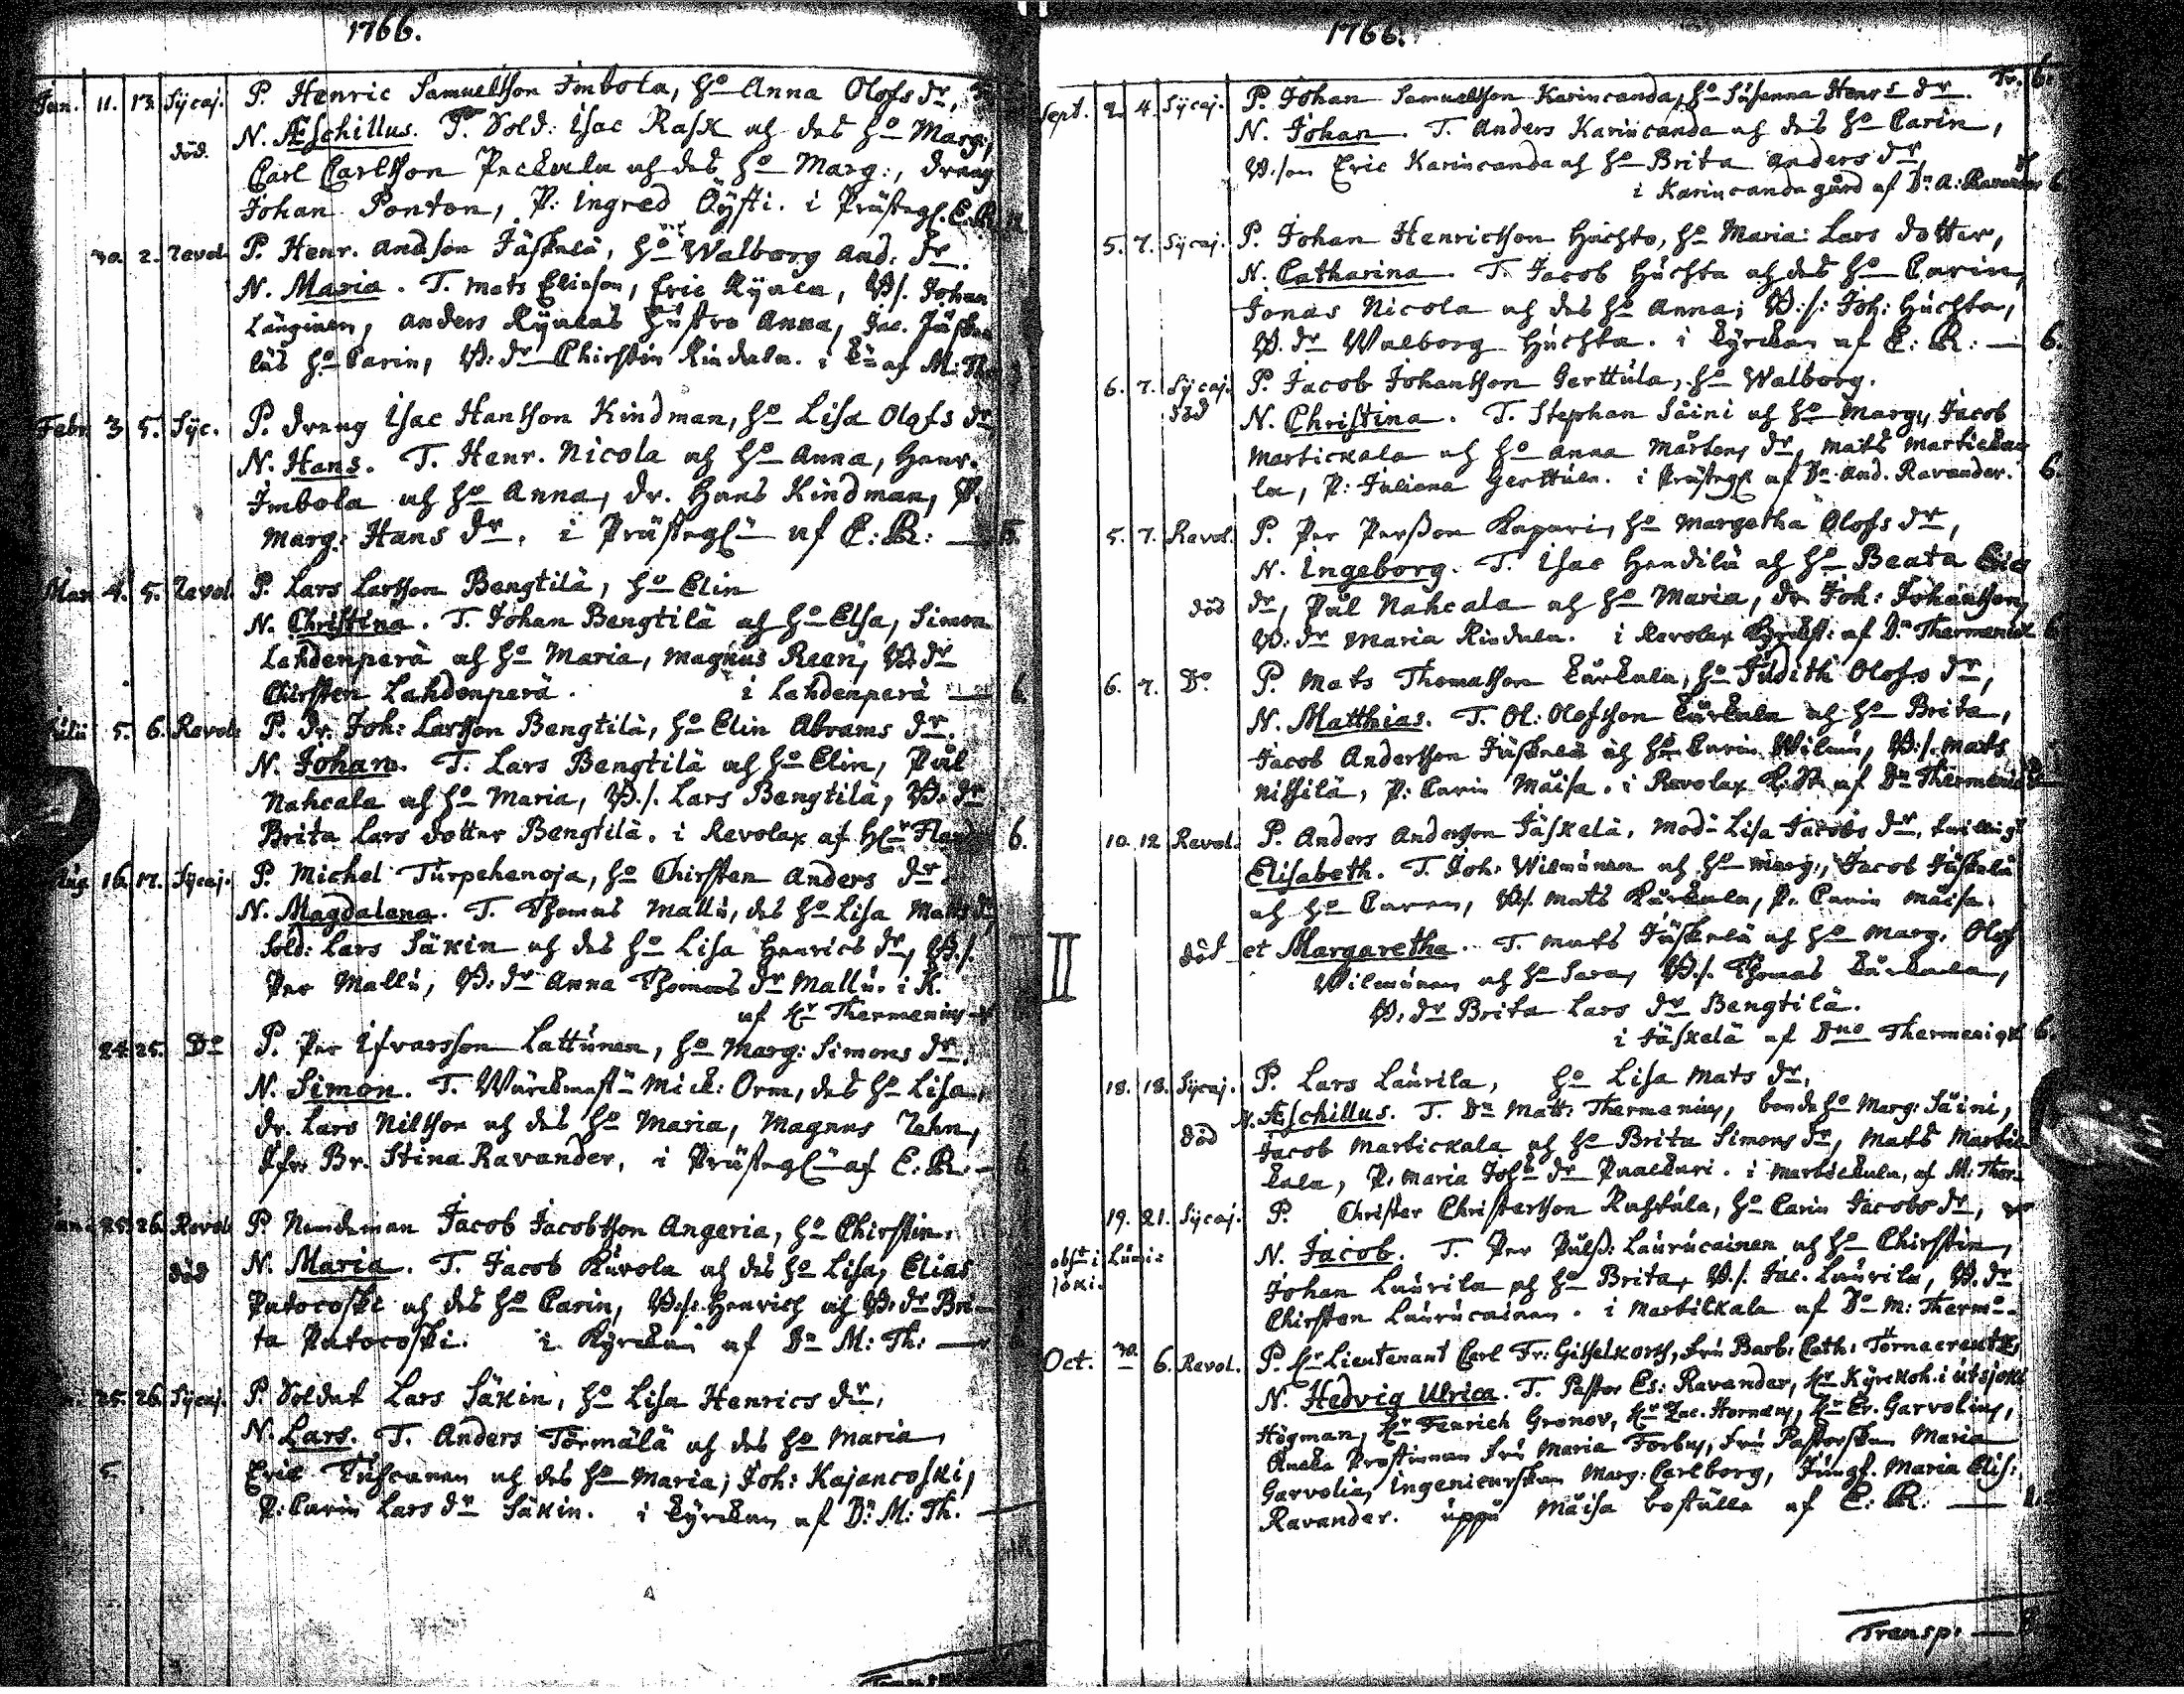 1766.
Jan. 11. 13. Sijcaj. P. Henric Samuelsson Imbola, ho Anna Olofs dr,
död. N. Æschillus. T. Sold: Isac Rask och des ho Marg:,
Carl Carlsson Peckala och des ho Marg:, dräng
Johan Ponton, P: Ingred Öysti. i Prästeg. E. R.
30. 2. Revol. P. Henr. Andsson Jäskelä, ho Walborg And. dr.
N. Maria. T. Mats Eliason, Eric Kynen, Vs. Johan
Länginen, Anders Kynens hustro Anna, Jac. Jäske
läs ho Carin, V: dr Chirstin Rindala. i af M: Th
Febr. 3. 5. Sijc. P. dräng Isac Hansson Kindman, ho Lisa Olofs dr
N. Hans. T. Henr. Nicola och ho Anna, Henr.
Imbola och ho Anna, dr. Hans Kindman, P.
Marg: Hans dr. i Prästeg af E: R: — 6.
Mar. 4. 5. Revol. P. Lars Larsson Bengtilä, ho Elin
N. Christina. T. Johan Bengtilä och ho Elsa, Simon
Lahdenperä och ho Maria, Magnus Reen, V: dr
Chirsten Lahdenperä. i Lahdenperä — 6.
Julii 5. 6. Revol: P. Dr. Joh: Larsson Bengtilä, ho Elin Abrams dr.
N. Johan. T. Lars Bengtilä och ho Elin, Pål
Nahcala och ho Maria, V.s. Lars Bengtilä, V: dr
Brita Lars dotter Bengtilä. i Revolax af Hr 6.
Aug. 16. 17. Sijcaj. P. Michel Turpehenoja, ho Chirsten Anders dr.
N. Magdalena. T. Thomas Mallu, des ho Lisa Matts dr,
Sold: Lars Säkin och des ho Lisa Henrics dr, V.s.
Per Mallu, V: dr Anna Thomas dr Mallu. i K.
af Hr Thermenius
24. 25. Do P. Per Ifvarsson Lattunen, ho Marg: Simons dr.
N. Simon. T. Mick: Orm, des ho Lisa,
dr. Lars Nilsson och des ho Maria, Magnus Zehn,
Br. Stina Ravander, i Prästeg af E: R. —
25. 26. Revol. P. Nemdeman Jacob Jacobsson Angeria, ho Chirstin.
död N. Maria. T. Jacob Kurola och des ho Lisa, Elias
Patocoski och des ho Carin, V:s: Henrich och V: dr Bri-
ta Patocoski. i Kyrckan af Dn M: Th: —
25. 26. Sijcaj. P. Soldat Lars Säkin, ho Lisa Henrics dr,
N. Lars. T. Anders Törmälä och des ho Maria,
Eric Tuhcanen och des ho Maria, Joh: Kajancoski,
P: Carin Lars dr Säkin. i Kyrckan af D: M: Th. —
1766.
Tr. 6.
Sept. 2. 4. Sijcaj. P. Johan Samuelsson Karincanda, ho Susanna Henrs dr.
N. Johan. T. Anders Karincanda och des ho Carin,
V:son Eric Karincanda och ho Brita Anders dr,
i Karincanda gård af Dn A: Ravander 6
5. 7. Sijcaj. P. Johan Henricsson Huchta, ho Maria Lars dotter,
N. Catharina. T. Jacob Huchta och des ho Carin,
Jonas Nicola och des ho Anna; V:s: Joh: Huchta,
V. dr Walborg Huchta. i Kyrckan af E: R: — 6.
6. 7. Sijcaj. P. Jacob Johansson Gerttula, ho Walborg.
död N. Christina. T. Stephan Säini och ho Marg:, Jacob
Martickala och ho Anna Mårtens dr, Mats Marticka
la, P: Juliana Gerttula. i Prästeg af Dn And. Ravander. 6.
5. 7. Revol. P. Per Persson Kapari, ho Margetha Olofs dr,
N. Ingeborg. T. Isac Hendilä och ho Beata Erics
död dr, Pål Nahcala och ho Maria, dr Joh: Johansson,
V: dr Maria Rindala. i Revolax Kyrck: af Dn Thermenius 6
6. 7. Do. P. Mats Thomasson Kärkala, ho Judith Olofs dr,
N. Matthias. T. Ol: Olofsson Kärkala och ho Brita,
Jacob Andersson Jäskelä och ho Carin Wilmun, V:s. Mats
Nissilä, P: Carin Mäisa. i Revolax af Dn Thermenius
10. 12 Revol. P. Anders Andersson Jäskelä, Mod: Lisa Jacobs dr, twilling:
Elisabeth. T. Joh: Wilmunen och ho Marg:, Jacob Jäskelä
och ho Caren, V:s. Mats Kärkala, P. Carin Mäisa.
död et Margaretha. T. Mats Jäskelä och ho Marg. Olof
II Wilmunen och ho Sara, V:s. Thomas Kärkala,
V: dr Brita Lars dr Bengtilä.
i Jäskelä af Dno Thermenius 6.
18. 18. Sijcaj. P. Lars Laurila, ho Lisa Mats dr,
N. Æschillus. T. Dn Matt: Thermenius, bonde ho Marg: Säini,
död Jacob Martickala och ho Brita Simons dr, Mats Martic
kala, P. Maria Joh dr Paackari. i Martickala, af M: Ther.
19. 21. Sijcaj. P. Christer Christersson Ruhtula, ho Carin Jacobs dr,
Lumi= N. Jacob. T. Per Pålss: Laurucainen och ho Chirstin,
joki. Johan Laurila och ho Brita, V.s. Jac. Laurila, V. dr
Chirsten Laurucainen. i Martickala af Do M: Therm
Oct. 30. 6. Revol. P. Hr Lieutenant Carl Fr: Gisselkors, Fru Barb. Cath: Tornaerentz,
N. Hedvig Ulrica. T. Pastor Es: Ravander, Hr Kyrckoh. i Utsjoki
Högman, Hr Fenrich Gronov, Hr Zac. Hornæus, Hr Er. Garvolius,
Prostinnan Fru Maria Forbus, Fru Pastorskan Maria
Garvolia, Ingenieurskan Marg: Carlborg, Jungf. Maria Elis:
Ravander. uppå Mäisa boställe af E: R: —
Transp: — 8